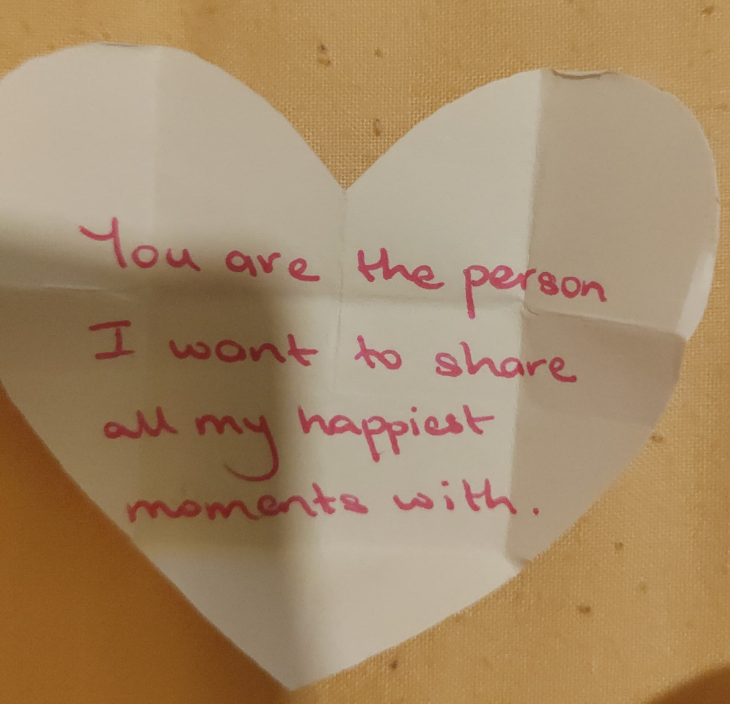 You are the person
I want to share
all my happiest
moments with.